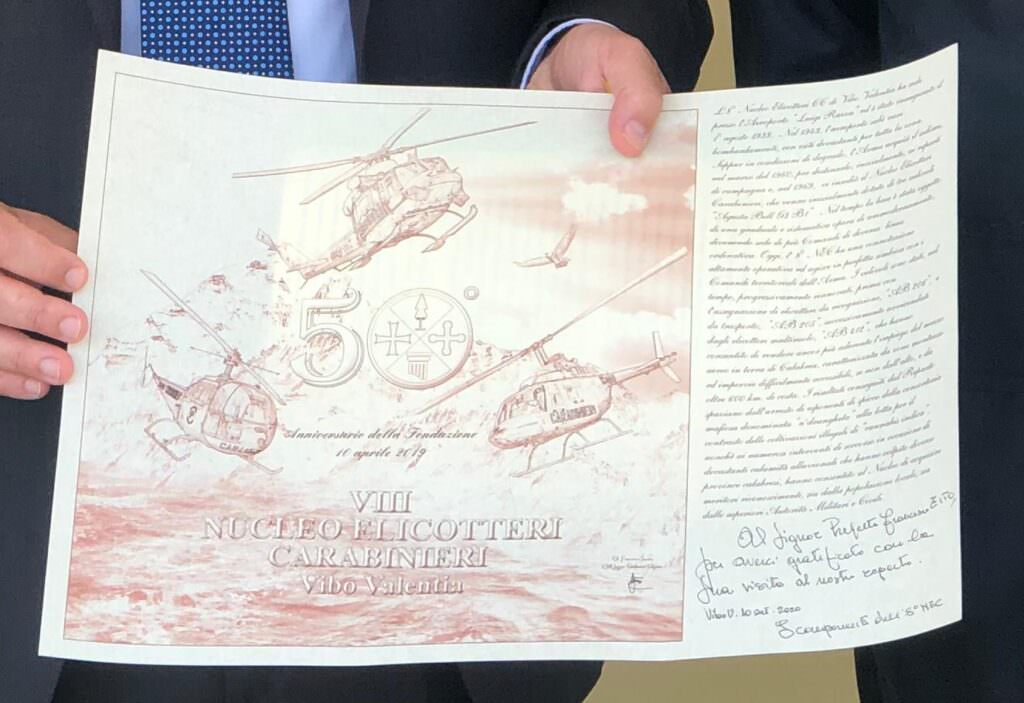 50°
Anniversario della Fondazione
10 aprile 2019
VIII
NUCLEO ELICOTTERI
CARABINIERI
Vibo Valentia
8
CARABINIERI
L'8° Nucleo Elicotteri CC di Vibo Valentia ha sede
presso l'Aeroporto "Luigi Razza" ed è stato inaugurato il
1° agosto 1932. Nel 1943, l'aeroporto subì vari
bombardamenti, con esiti devastanti per tutta la zona
Seppur in condizioni di degrado, l'Arma acquisì il sedime
nel marzo del 1962, per destinarlo, inizialmente, ai reparti
di campagna e, nel 1969, vi insediò il Nucleo Elicotteri
Carabinieri, che venne inizialmente dotato di tre velivoli
"Agusta Bell G3 B1" Nel tempo la base è stata oggetto
di una graduale e sistematica opera di ammodernamento,
divenendo sede di più Comandi di diversa linea
ordinativa Oggi, l'8° NEC ha una connotazione
altamente operativa ed agisce in perfetta simbiosi con i
Comandi territoriali dell'Arma. I velivoli sono stati, nel
tempo, progressivamente rinnovati, prima con
l'assegnazione di elicotteri da ricognizione, "AB 206", e
da trasporto, "AB 205" successivamente avvicendati
dagli elicotteri multiruolo, "AB 412", che hanno
consentito di rendere ancor più saliente l'impiego del mezzo
aereo in terra di Calabria, caratterizzata da zone montuose
ed impervie difficilmente accessibili, se non dall'alto, e da
oltre 600 km. di costa. I risultati conseguiti dal Reparto
spaziano dall'arresto di esponenti di spicco della consorteria
mafiosa denominata "'ndrangheta" alla lotta per il
contrasto delle coltivazioni illegali di "cannabis indica"
nonché ai numerosi interventi di soccorso in occasione di
devastanti calamità alluvionali che hanno colpito diverse
province calabresi, hanno consentito al Nucleo di acquisire
meritori riconoscimenti, sia dalla popolazione locale, sia
dalle superiori Autorità Militari e Civili.
Al Signor Prefetto Francesco ZITO,
per averci gratificato con la
Sua visita al nostro reparto.
Vibo V. 10 2020
I componenti dell'8° NEC